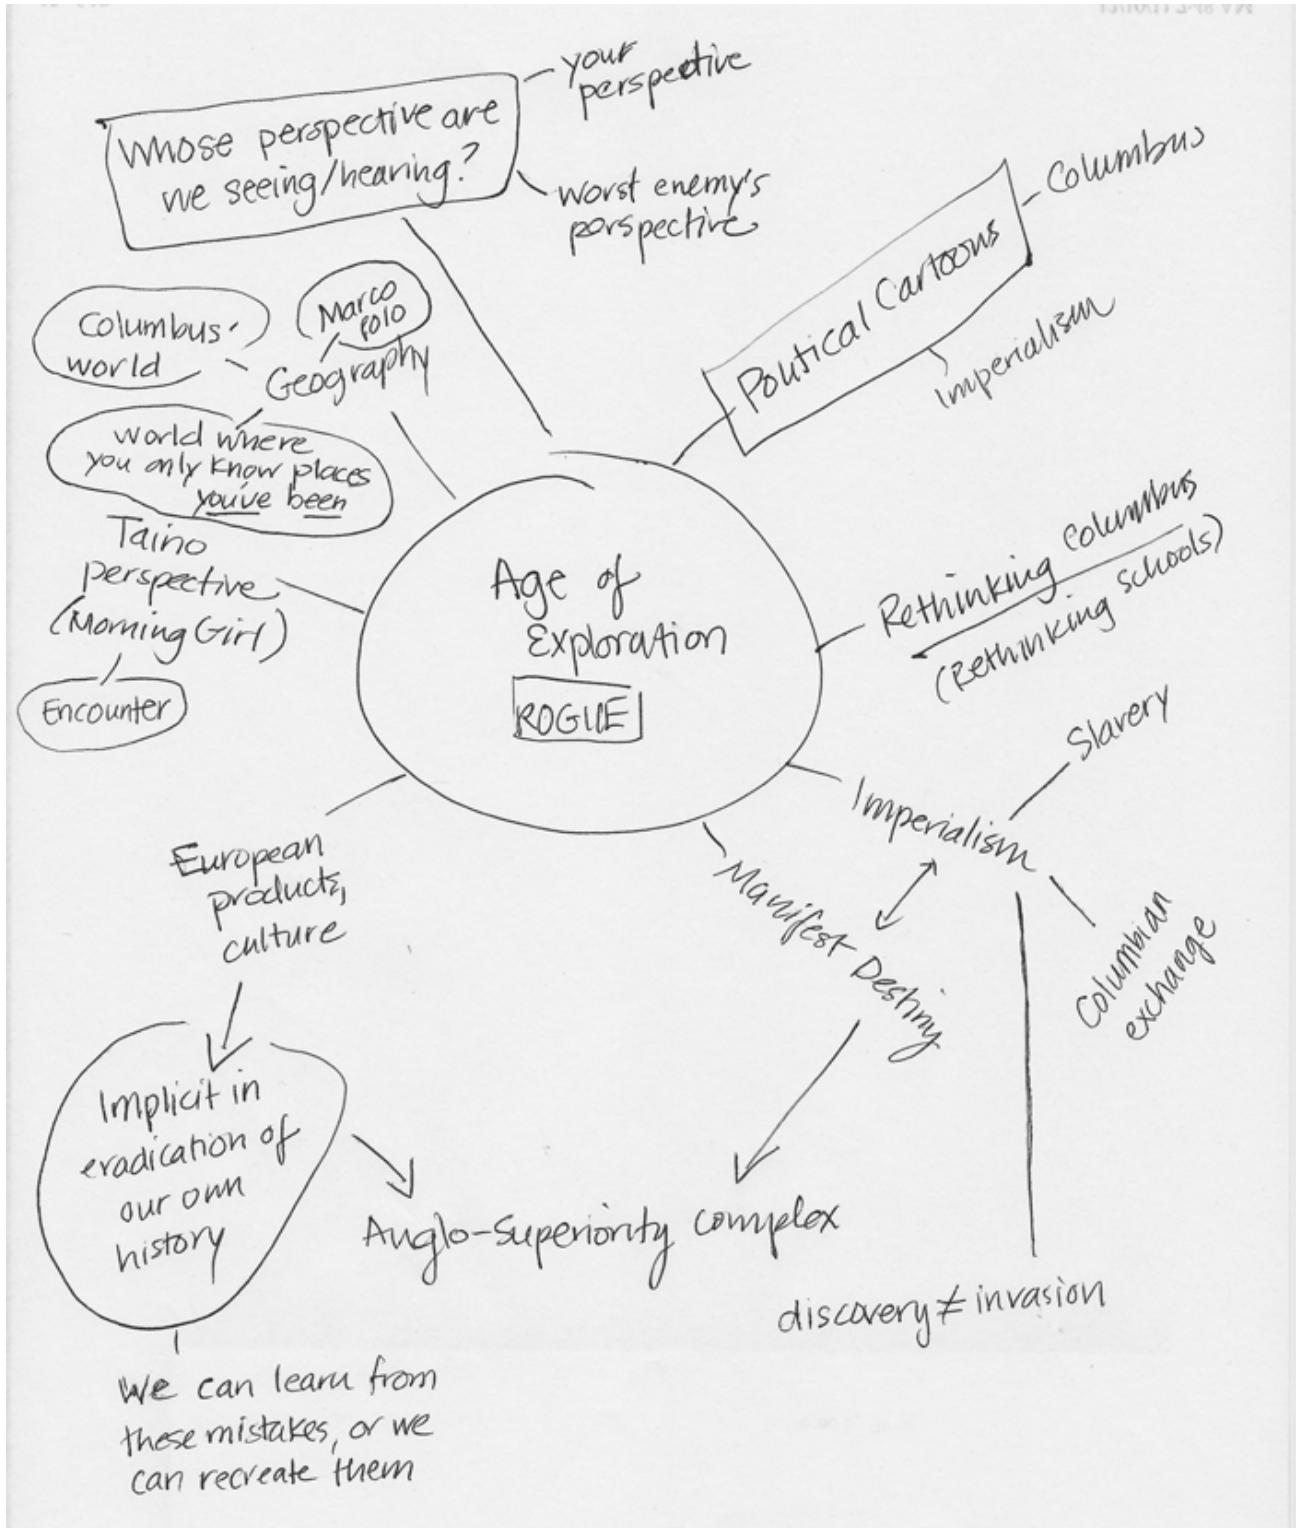 your
perspective
Whose perspective are
we seeing/hearing?
worst enemy's
perspective
Political Cartoons
Columbus
Imperialism
Columbus'
world
Marco
Polo
Geography
world where
you only know places
you've been
Taino
perspective
(Morning Girl)
Encounter
Age of
Exploration
ROGUE
Rethinking Columbus
(Rethinking Schools)
Imperialism
Slavery
Columbian
exchange
Manifest Destiny
European
products,
culture
Implicit in
eradication of
our own
history
Anglo-Superiority complex
discovery ≠ invasion
We can learn from
these mistakes, or we
can recreate them